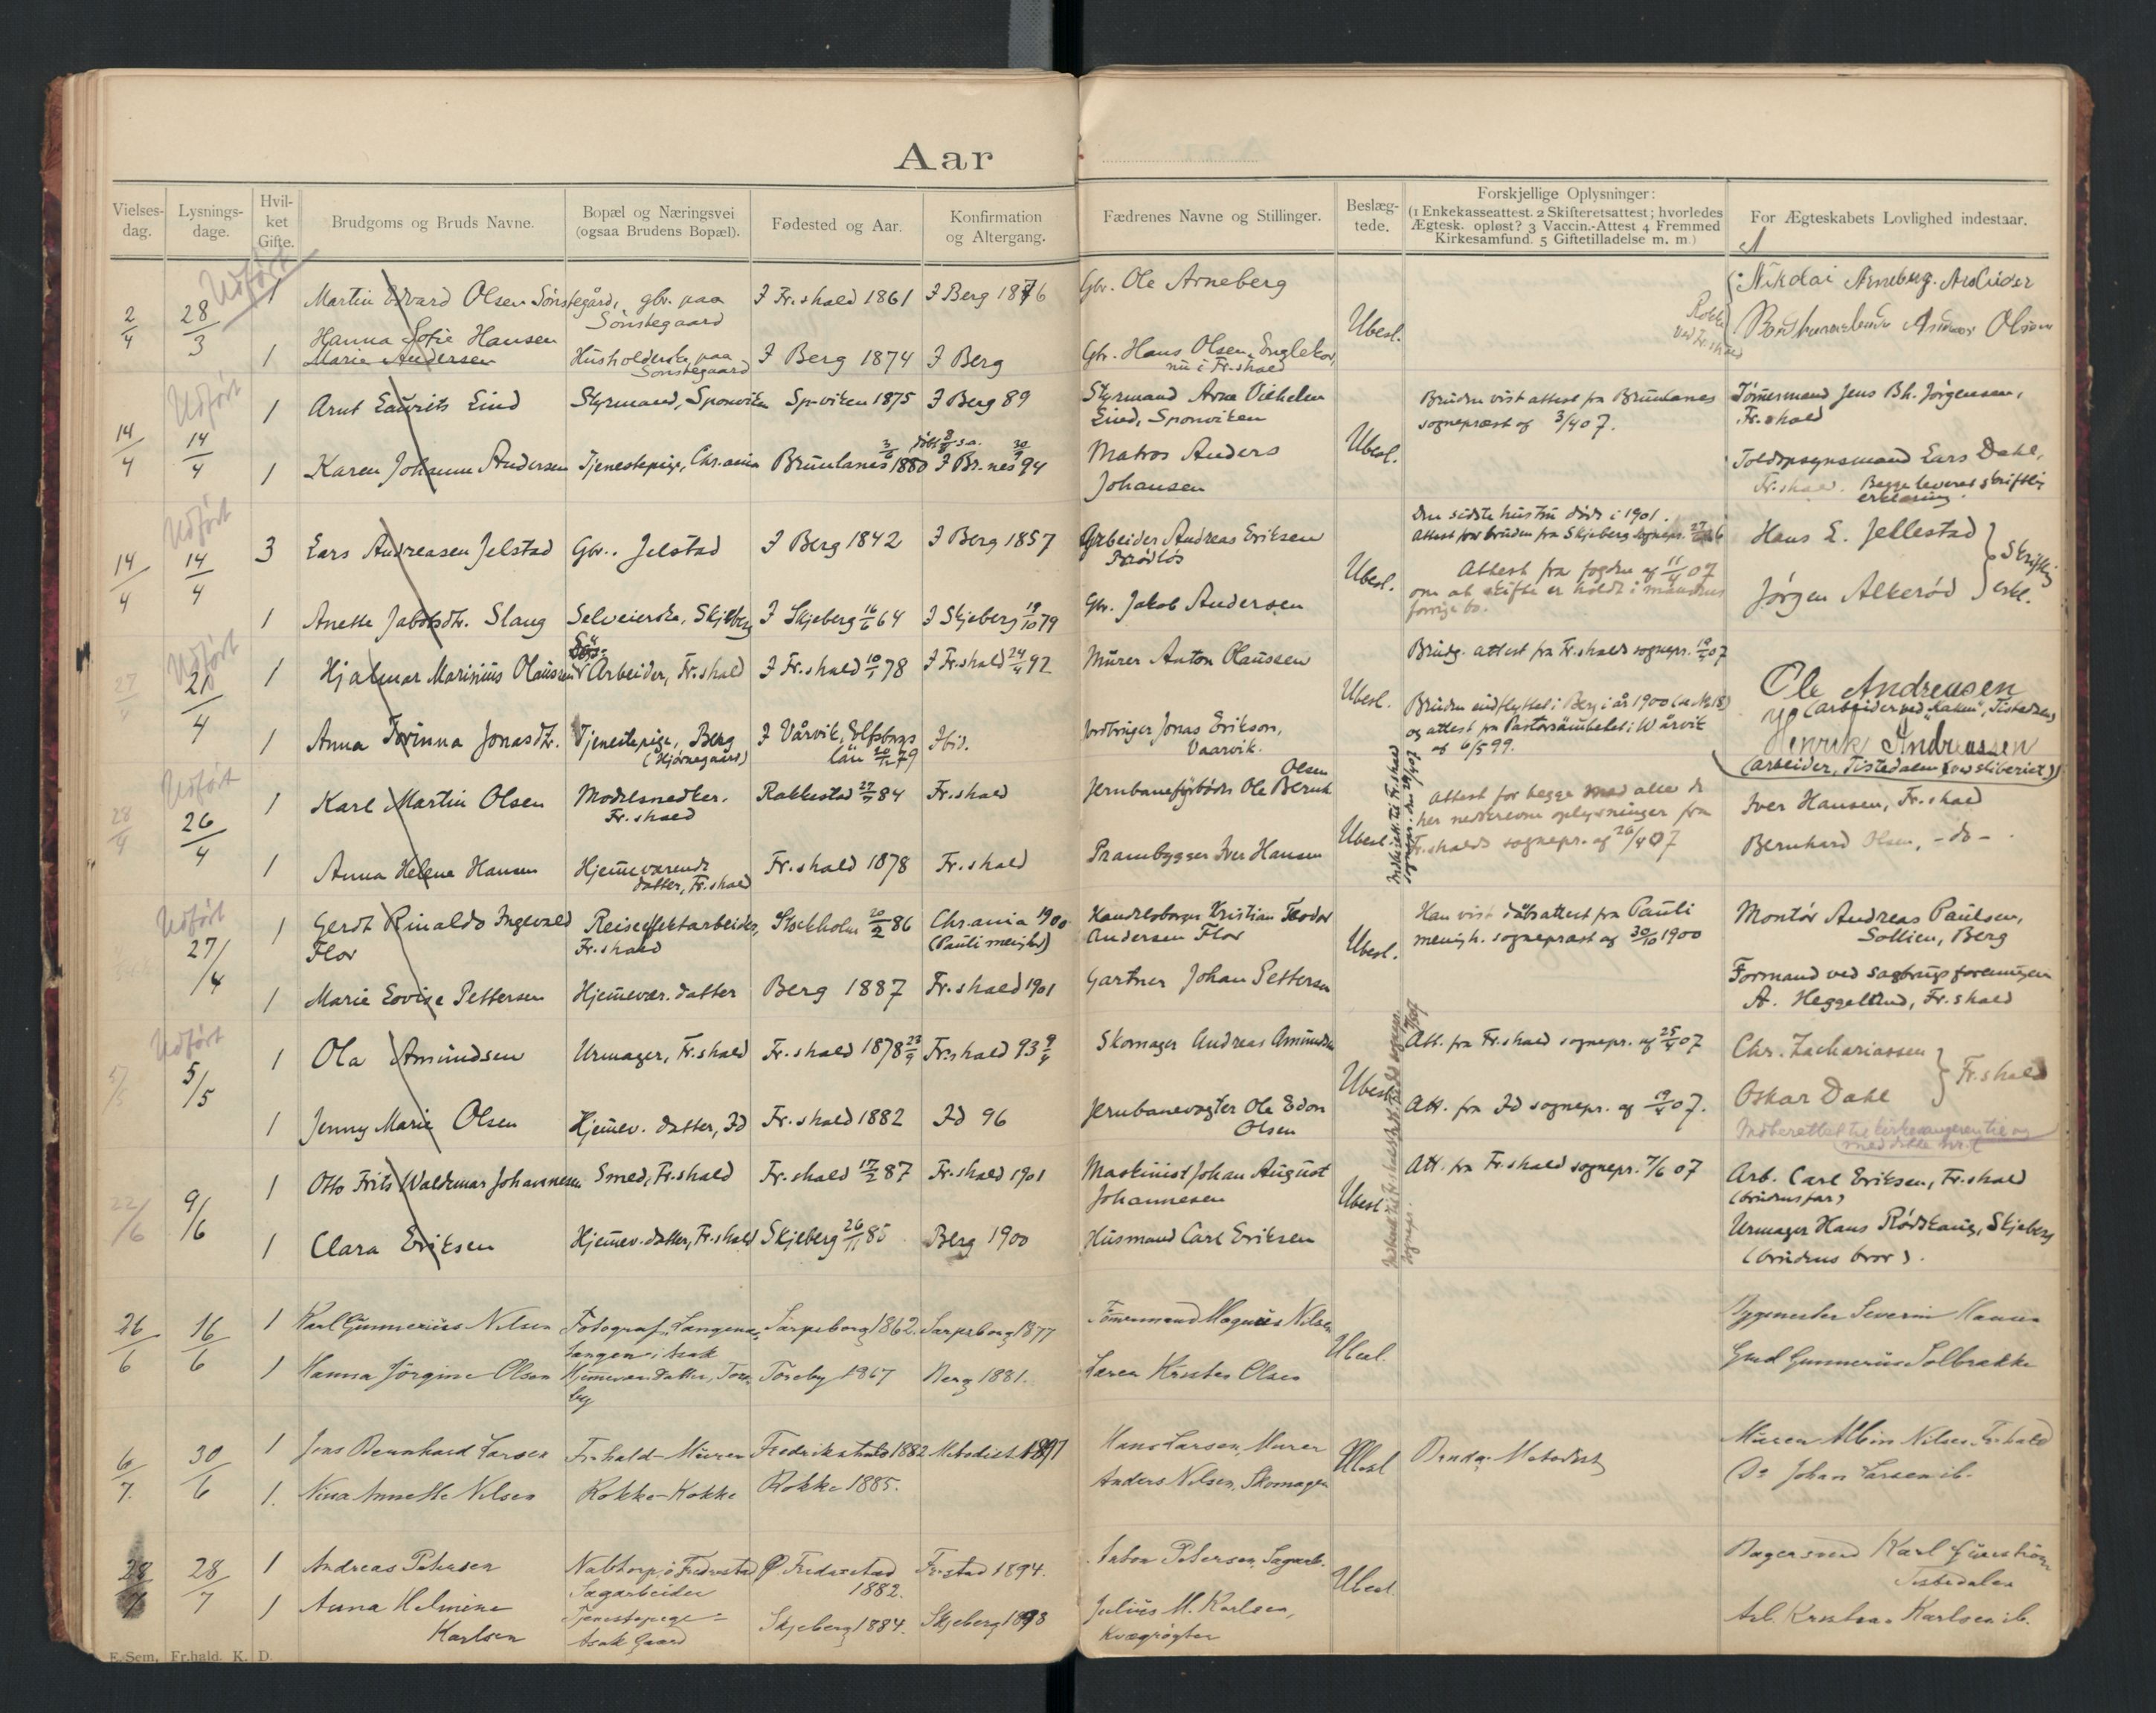 Aar
Vielses-
dag.
Lysnings-
dage.
Hvil-
ket
Gifte.
Brudgoms og Bruds Navne.
Bopæl og Næringsvei
(ogsaa Brudens Bopæl).
Fødested og Aar.
Konfirmation
og Altergang.
Fædrenes Navne og Stillinger.
Beslæg-
tede.
Forskjellige Oplysninger:
(1 Enkekasseattest. 2 Skifteretsattest; hvorledes
Ægtesk. opløst? 3 Vaccin.-Attest 4 Fremmed
Kirkesamfund. 5 Giftetilladelse m. m.)
For Ægteskabets Lovlighed indestaar.
Udført
2/4 28/3 1 Martin Edvard Olsen Sønstegård, gbr. paa I Fr.shald 1861 I Berg 1876 Gbr. Ole Arneberg Nikolai Arneberg. Arbeider
Sønstegaard
Hanna Sofie Hansen Ubesl. Rokke Olsen
ved Fr.shald
1 Marie Andersen Husholderske paa I Berg 1874 I Berg Gbr. Hans Olsen Englekor,
Sønstegaard nu i Fr.shald
Udført
14/4 14/4 1 Arnt Laurits Lind Styrmand, Sponviken Sp-viken 1875 I Berg 89 Styrmand Arne Vilhelm Bruden vist attest fra Brunlanes Tømmermand Jens Bh. Jørgensen,
Lind, Sponviken sognepræst af 3/4 07. Fr.shald
Ubesl.
1 Karen Johanne Andersen Tjenestepige, Chr.ania Brunlanes 3/6 1880 døbt s.a. I Br.nes 94 Matros Anders Toldopsynsmand Lars Dahl,
Johansen Fr.shald. Begge leveret skriftlig
erklæring.
Udført
Den sidste hustru døde i 1901.
14/4 14/4 3 Lars Andreasen Jelstad Gbr. Jelstad I Berg 1842 I Berg 1857 Arbeider Andreas Eriksen Attest for bruden fra Skjeberg sognepr. Hans E. Jellestad
Skriftlig
Ubesl. Attest fra fogden af 11/4 07
om at skifte er holdt i mandens
forrige bo. erkl.
1 Anette Jakobsdtr. Slang Selveierske, Skjeberg I Skjeberg 16/6 64 I Skjeberg 19/10 79 Gbr. Jakob Andersen Jørgen Alkerød
Udført
21/4 1 Hjalmar Marinius Olaussen Arbeider, Fr.shald I Fr.shald 10/1 78 I Fr.shald 24/4 92 Murer Anton Olaussen Brudg. attest fra Fr.shald sognepr. 19/4 07
Ubesl. Bruden indflyttet i Berg i år 1900 Ole Andreasen
(arbeider ved "Kaken", Tistedalen)
1 Anna Torinna Jonasdtr. Tjenestepige, Berg I Vårvik, Elfsborgs Ibid. Jordbruger Jonas Erikson, og attest fra Pastorsämbetet i Wårvik Henrik Andreassen
(Hjørnegaard) län 20/12 79 Vaarvik. af 6/5 99. (arbeider, Tistedalen (ved sliberiet))
Udført
28/4 26/4 1 Karl Martin Olsen Modelsnedker. Rakkestad 27/7 84 Fr.shald Jernbanefyrbøder Ole Bernh. Olsen Attest for begge med alle de Iver Hansen, Fr.shald
Fr.shald her nedskrevne oplysninger fra
Ubesl. Fr.shald sognepr. af 26/4 07 Bernhard Olsen, - do -
1 Anna Helene Hansen Hjemmeværende Fr.shald 1878 Fr.shald Prambygger Iver Hansen
datter, Fr.shald
Udført
27/4 1 Gerdt Rinaldo Ingevald Reiseeffektarbeider, Stockholm 20/2 86 Chr.ania 1900 Handelsborger Kristian Teodor Han vist dåbsattest fra Pauli Montør Andreas Paulsen,
Flor Fr.shald (Pauli menighed) Andersen Flor Ubesl. menigh. sognepræst af 30/10 1900 Sollien, Berg
1 Marie Lovise Pettersen Hjemmevær. datter Berg 1887 Fr.shald 1901 Gartner Johan Pettersen Formand ved Sagbrugsforeningen
A. Heggelund, Fr.shald
Udført
5/5 5/5 1 Ola Amundsen Urmager, Fr.shald Fr.shald 1878 Fr.shald 93 9/4 Skomager Andreas Amundsen Att. fra Fr.shald sognepr. af 25/4 07 Chr. Zachariassen
Ubesl. Fr.shald
1 Jenny Marie Olsen Hjemmev. datter, Id Fr.shald 1882 Id 96 Jernbanevogter Ole Edon Att. fra Id sognepr. af 19/4 07. Oskar Dahl
Olsen
22/6 9/6 1 Otto Frits Waldemar Johannesen Smed, Fr.shald Fr.shald 17/2 87 Fr.shald 1901 Maskinist Johan August Att. fra Fr.shald sognepr. 7/6 07 Arb. Carl Eriksen, Fr.shald
Johannesen (brudens far)
Ubesl.
1 Clara Eriksen Hjemmev. datter, Fr.shald Skjeberg 26/11 85 Berg 1900 Husmand Carl Eriksen Urmager Hans Rødskaug, Skjeberg
(brudens bror).
26/6 16/6 1 Karl Gunnerius Nilsen Fotograf Sarpsborg 1862. Sarpsborg 1877 Tømmermand Magnus Nilsen Severin Hansen
i Asak Ubesl.
1 Hanna Jørgine Olsen Hjemmevær. datter, Tore- Toreby 1867 Berg 1881. Lærer Krister Olsen Gmd. Gunnerius Solbrække
by
6/7. 30/6 1 Jens Bernhard Larsen Fr.hald - Murer Fredrikshald 1882 Metodist 1897 Hans Larsen, Murer Ubesl Brudg. Metodist Murer Albin Nilsen Fr.hald
1. Nina Annette Nilsen Rokke - Rokke Rokke 1885. Anders Nilsen, Skomager Do Johan Larsen ib.
28/7 28/7 1 Andreas Petersen Nabbtorp, ø Fredrstad Ø Fredrikstad Fr.stad 1894. Anton Petersen, Sagarb. Bagersvend Karl
Sagarbeider 1882. Ubesl Tistedalen
1 Anna Helmine Tjenestepige - Skjeberg 1884. Skjeberg 1898 Julius M. Karlsen, Arb. Kristian Karlsen ib.
Karlsen Asak Gaard Kvægrøgter
E. Sem, Fr.hald. K. D.